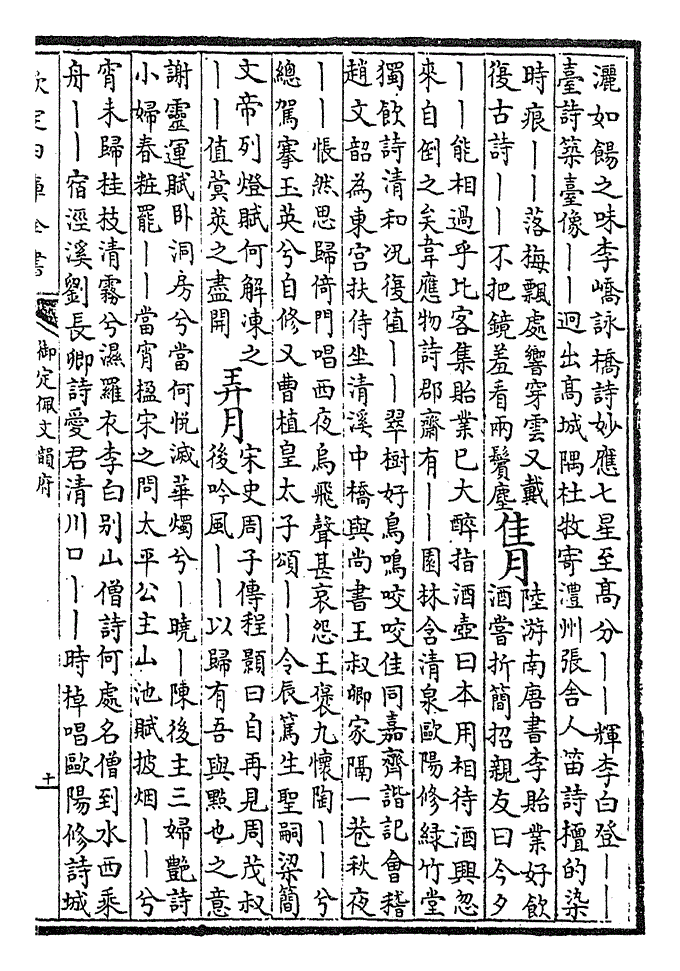 灑如餳之味李嶠詠橋詩妙應七星至高分丨丨輝李白登丨丨
臺詩築臺像丨丨迥出高城隅杜牧寄澧州張舍人笛詩擅的染
時痕丨丨落梅飄處響穿雲又戴
復古詩丨丨不把鏡羞看兩鬢塵
佳月
陸游南唐書李貽業好飲
酒嘗折簡招親友曰今夕
丨丨能相過乎比客集貽業已大醉指酒壺曰本用相待酒興忽
來自倒之矣韋應物詩郡齋有丨丨園林含清泉歐陽修緑竹堂
獨飲詩清和况復值丨丨翠樹好鳥鳴咬咬佳同嘉齊諧記會稽
趙文韶為東宫扶侍坐清溪中橋與尚書王叔卿家隔一巷秋夜
丨丨悵然思歸倚門唱西夜烏飛聲甚哀怨王褒九懷陶丨丨兮
總駕搴玉英兮自修又曹植皇太子頌丨丨令辰篤生聖嗣梁簡
文帝列燈賦何解凍之
丨丨值蓂莢之盡開
弄月
宋史周子傳程顥曰自再見周茂叔
後吟風丨丨以歸有吾與點也之意
謝靈運賦卧洞房兮當何悦滅華燭兮丨曉丨陳後主三婦艷詩
小婦春粧罷丨丨當宵楹宋之問太平公主山池賦披烟丨丨兮
宵未歸桂枝清霧兮濕羅衣李白别山僧詩何處名僧到水西乘
舟丨丨宿涇溪劉長卿詩愛君清川口丨丨時棹唱歐陽修詩城
欽定四庫全書
御定佩文韻府
十